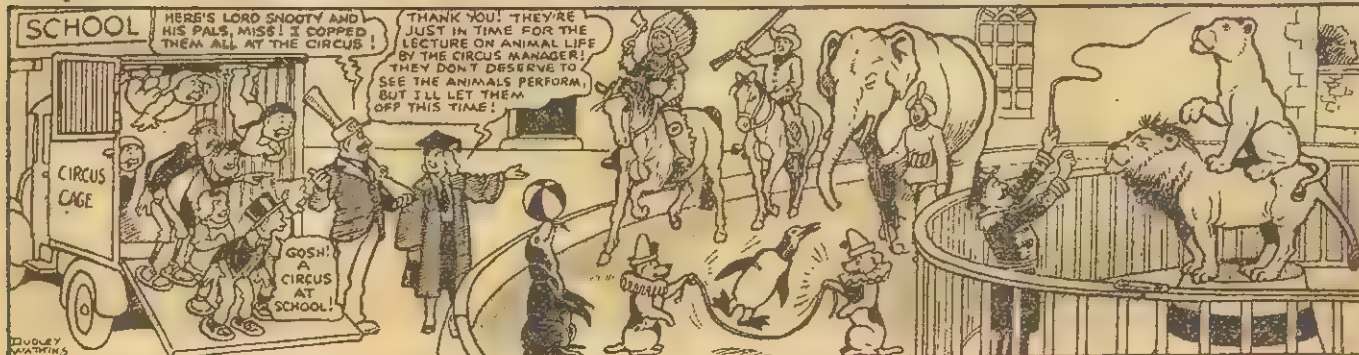 SCHOOL
HERE'S LORD SNOOTY AND
HIS PALS, MISS! I COPPED
THEM ALL AT THE CIRCUS!
THANK YOU! THEY'RE
JUST IN TIME FOR THE
LECTURE ON ANIMAL LIFE
BY THE CIRCUS MANAGER!
THEY DON'T DESERVE TO
SEE THE ANIMALS PERFORM,
BUT I'LL LET THEM
OFF THIS TIME!
CIRCUS
CAGE
GOSH!
A
CIRCUS
AT
SCHOOL!
DUDLEY
WATKINS